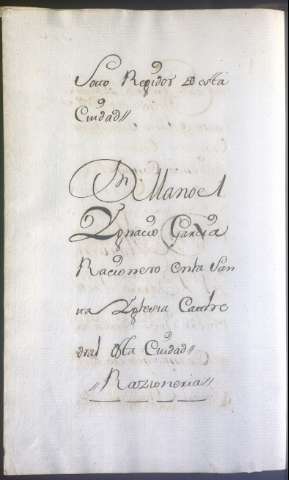 Soco Regidor desta
Ciudad//
Dn Manoel
Ygnacio Garcia
Racionero enta San
ta Yglecia Cathe
dral desta Ciudad
// Razioneria //